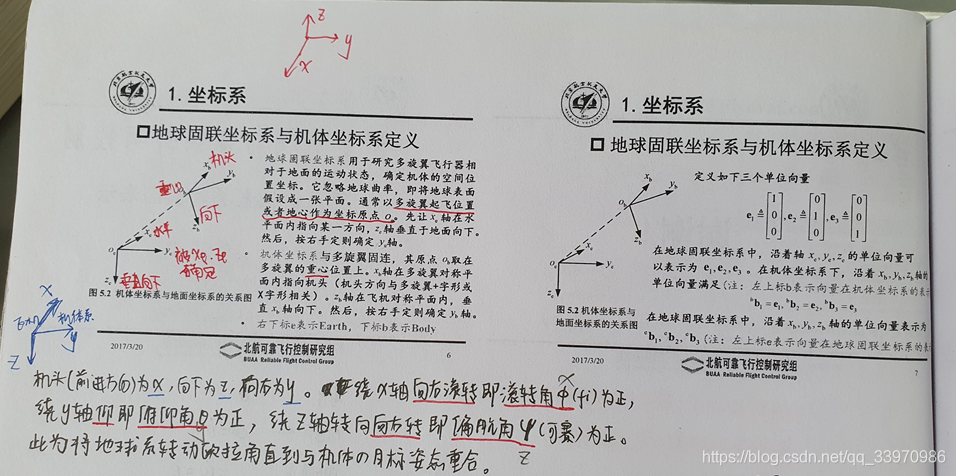 z
y
x
1. 坐标系
地球固联坐标系与机体坐标系定义
机头
x_b
y_b
重心
o_b
z_b
向下
x_e
水平
o_e
y_e
z_e
垂直向下
被x_e,z_e
确定
图 5.2 机体坐标系与地面坐标系的关系图
• 地球固联坐标系用于研究多旋翼飞行器相
对于地面的运动状态,确定机体的空间位
置坐标。它忽略地球曲率,即将地球表面
假设成一张平面。通常以多旋翼起飞位置
或者地心作为坐标原点 o_e。先让x_e轴在水
平面内指向某一方向,z_e轴垂直于地面向下。
然后,按右手定则确定y_e轴。
• 机体坐标系与多旋翼固连,其原点o_b取在
多旋翼的重心位置上。x_b轴在多旋翼对称平
面内指向机头(机头方向与多旋翼+字形或
X字形相关)。z_b轴在飞机对称平面内,垂
直x_b轴向下。然后,按右手定则确定y_b轴。
• 右下标e表示Earth,下标b表示Body
2017/3/20
北航可靠飞行控制研究组
BUAA Reliable Flight Control Group
6
X
机体系
y
Z
1. 坐标系
地球固联坐标系与机体坐标系定义
x_b
y_b
o_b
z_b
x_e
o_e
y_e
z_e
图5.2 机体坐标系与
地面坐标系的关系图
定义如下三个单位向量
e₁ ≜ [1 0 0], e₂ ≜ [0 1 0], e₃ ≜ [0 0 1]
在地球固联坐标系中,沿着轴 x_e,y_e,z_e 的单位向量可
以表示为 e₁,e₂,e₃。在机体坐标系下,沿着x_b,y_b,z_b轴的
单位向量满足(注:左上标b表示向量在机体坐标系的表示
ᵇb₁ = e₁, ᵇb₂ = e₂, ᵇb₃ = e₃
在地球固联坐标系中,沿着x_b,y_b,z_b轴的单位向量表示为
ᵉb₁,ᵉb₂,ᵉb₃(注:左上标e表示向量在地球固联坐标系的表
2017/3/20
北航可靠飞行控制研究组
BUAA Reliable Flight Control Group
7
机头(前进方向)为x,向下为z,向右为y。绕x轴向右滚转即滚转角φ(fi)为正,
x
绕y轴仰即俯仰角θ为正,绕z轴转向向右转即偏航角ψ(可赛)为正。
y
z
此为将地球系转动欧拉角直到与机体的目标姿态重合。
https://blog.csdn.net/qq_33970986